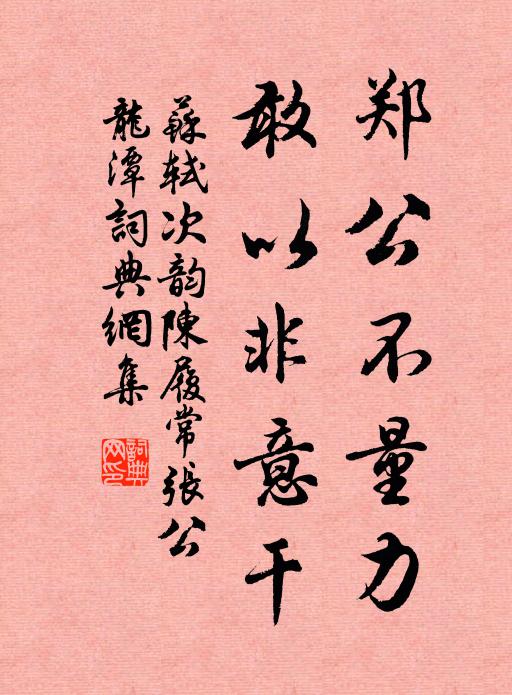 郑公不量力
敢以非意干
蘇轼次韵陳履常張公
龍潭詞典網集
詞典网印